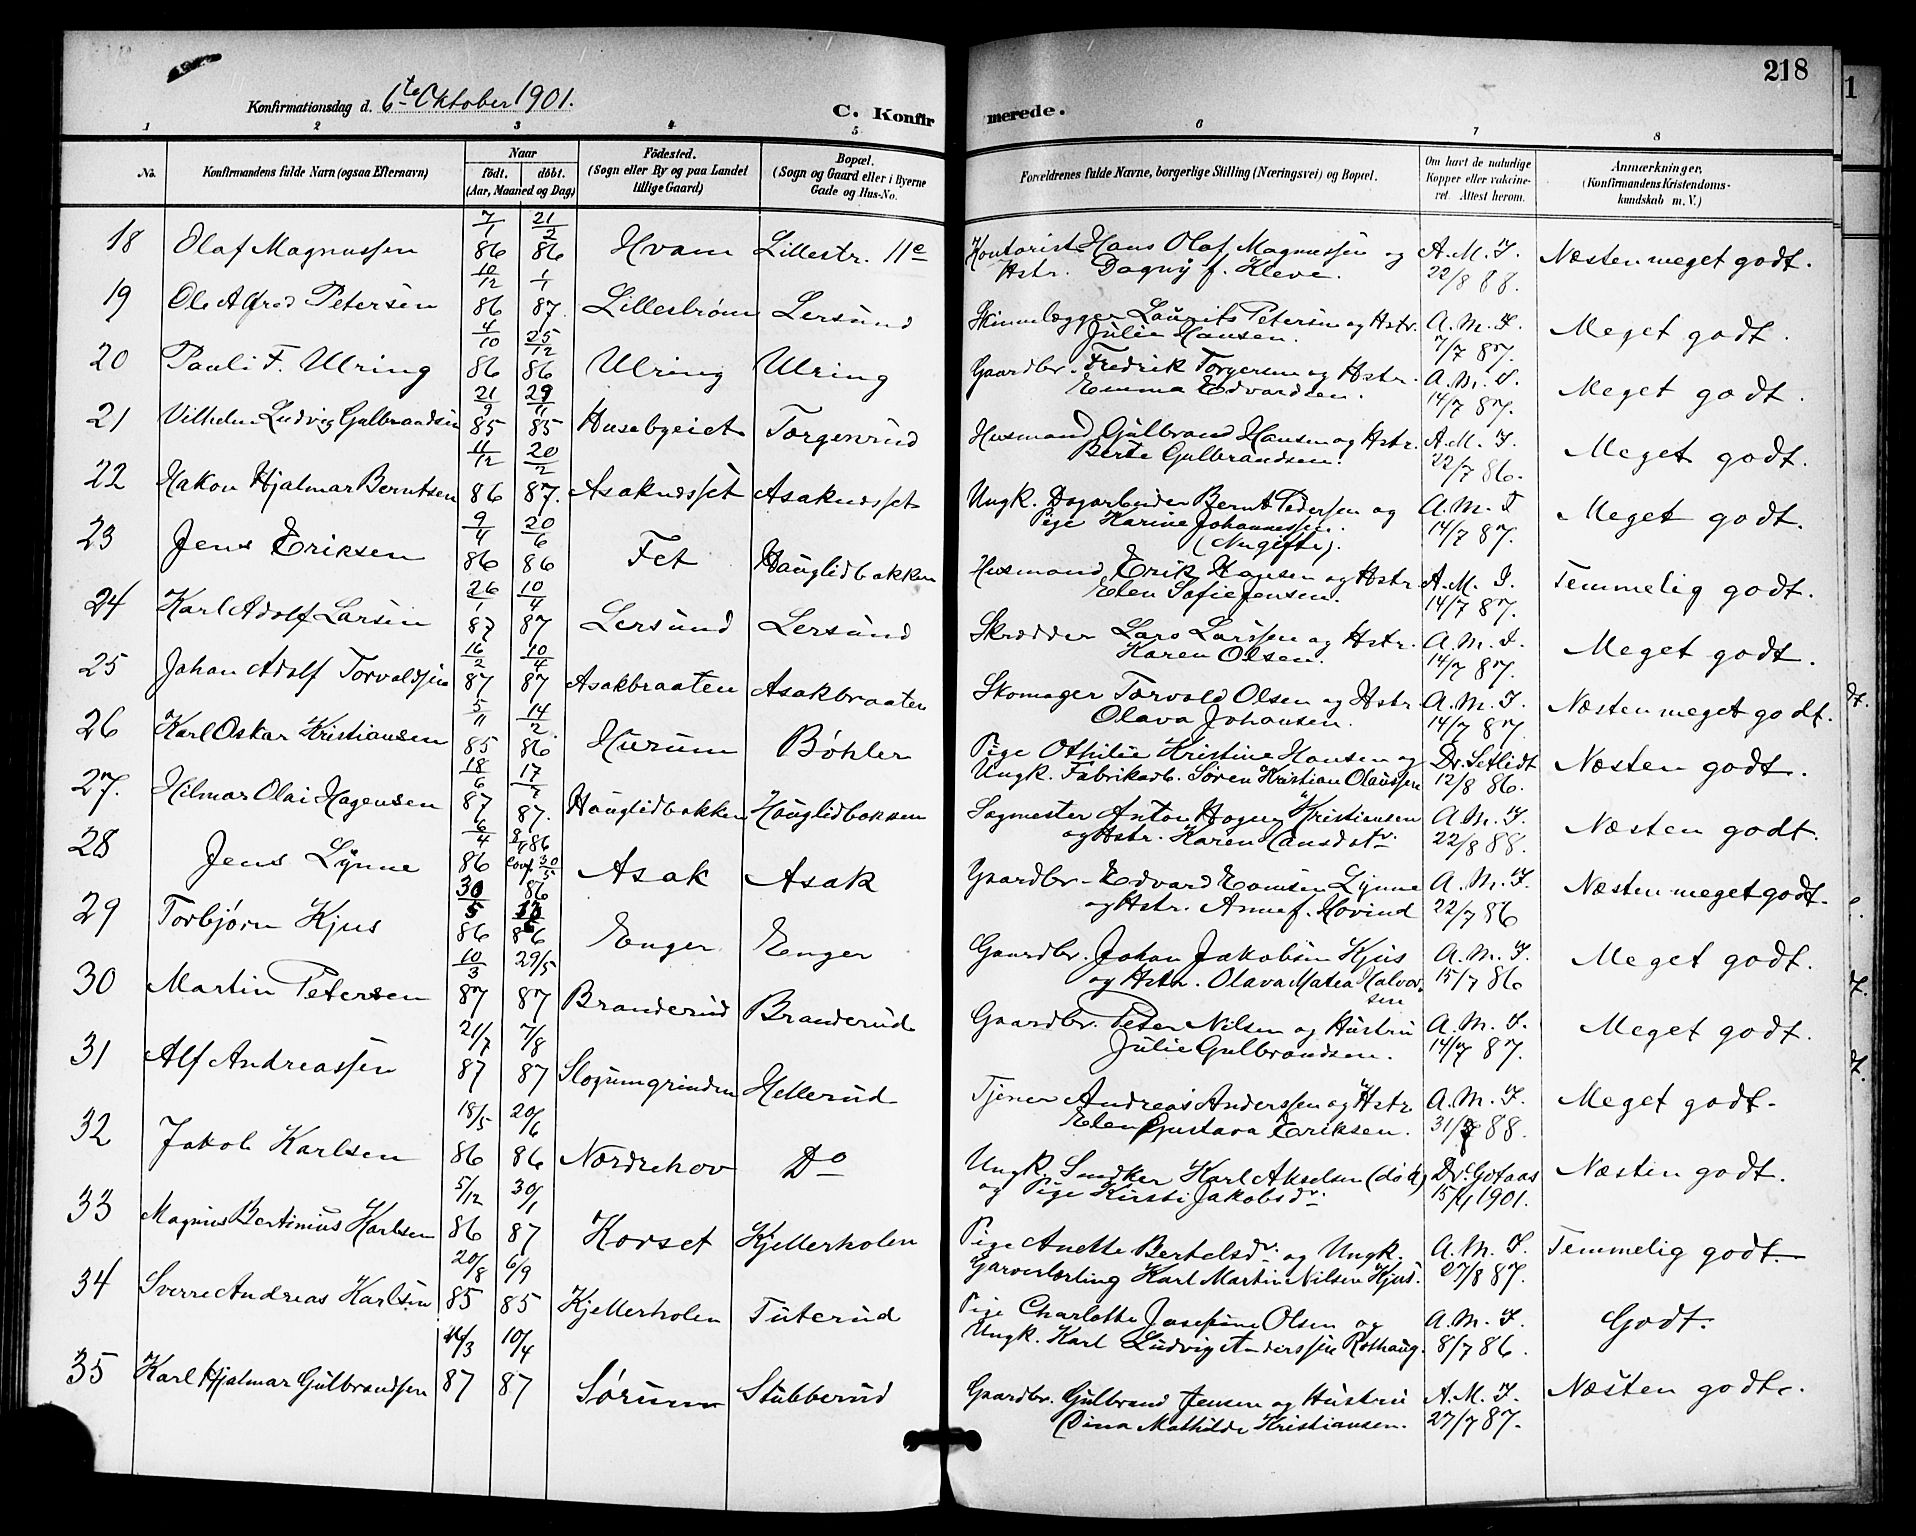 218
Konfirmationsdag d. 6te Oktober 1901.
C. Konfirmerede.
1 2 3 4 5 6 7 8
No. Konfirmandens fulde Navn (ogsaa Efternavn) Naar födt. döbt. (Aar, Maaned og Dag) Födested. (Sogn eller By og paa Landet tillige Gaard) Bopæl. (Sogn og Gaard eller i Byerne Gade og Hus-No. Forældrenes fulde Navne, borgerlige Stilling (Næringsvei) og Bopæl. Om havt de naturlige Kopper eller vakcineret. Attest herom. Anmærkninger, (Konfirmandens Kristendomskundskab m. V.)
18 Olaf Magnussen 7/1 86 21/2 86 Hvam Lillestr. 11e Kontorist Hans Olaf Magnussen og Hstr. Dagny f. Kleve. A. M. I. 22/8 88. Næsten meget godt.
19 Ole Alfred Petersen 10/12 86 1/1 87. Lillestrøm Lersund Skinnelægger Laurits Petersen og Hstr. Julie Hansen. A. M. I. 7/7 87. Meget godt.
20 Pauli F. Ulring 4/10 86 25/12 86 Ulring Ulring Gaardbr. Fredrik Torgersen og Hstr. Emma Edvardsen. A. M. I. 14/7 87. Meget godt.
21 Vilhelm Ludvig Gulbrandsen 21/9 85 29/11 85 Husebyeiet Torgenrud Husmand Gulbrand Hansen og Hstr. Berte Gulbrandsen. A. M. I. 22/7 86. Meget godt.
22 Hakon Hjalmar Berntsen 11/12 86 20/2 87. Asaknedsset Asaknedsset Ungk. Dagarbeider Bernt Pedersen og Pige Karine Johannessen. (Nu gifte). A. M. I 14/7 87. Meget godt.
23 Jens Eriksen 9/4 86 20/6 86 Fet Hauglidbakken Husmand Erik Hansen og Hstr. Elen Sofie Jensen. A. M. I. 14/7 87. Temmelig godt.
24 Karl Adolf Larsen 26/1 87 10/4 87 Lersund Lersund Skrædder Lars Larssen og Hstr. Karen Olsen. A. M. I. 14/7 87. Meget godt.
25 Johan Adolf Torvaldsen 16/2 87 10/4 87 Asakbraaten Asakbraaten Skomager Torvald Olsen og Hstr Olava Johansen. A. M. I. 14/7 87. Næsten meget godt.
26 Karl Oskar Kristiansen 5/11 85 14/2 86 Hurum Bøhler Pige Othilie Kristine Hansen og Ungk. Fabrikarb. Søren Kristian Olaussen Dr. Setlidt 12/8 86. Næsten godt.
27. Hilmar Olai Hagensen 18/6 87 17/7 87. Hauglidbakken Hauglidbakken Sagmester Anton Hagen Kristiansen og Hstr. Karen Hansdatr. A. M. I. 22/8 88. Næsten godt.
28 Jens Lynne 6/4 86 86 conf. 30/5 86 Asak Asak Gaardbr. Edvard Lynne og Hstr. Anne f. Hovind A. M. I. 22/7 86 Næsten meget godt.
29 Torbjørn Kjus 30/5 86 86 Enger Enger Gaardbr. Johan Jakobsen Kjus og Hstr. Olava Matea Halvorsen A. M. I. 15/7 86 Meget godt.
30 Martin Petersen 10/3 87 29/5 87 Branderud Branderud Gaardbr. Peter Nilsen og Hustru Julie Gulbrandsen. A. M. I. 14/7 87. Meget godt.
31 Alf Andreassen 21/7 87 7/8 87 Slogumgrinden Hellerud Tjener Andreas Anderssen og Hstr Elen Gustava Eriksen. A. M. I. 31/7 88. Meget godt.
32 Jakob Karlsen 18/5 86 20/6 86 Nordrehov Do Ungk. Snedker Karl Akselsen (død) og Pige Kirsti Jakobsdr. Dr. Gotaas 15/4 1901. Næsten godt.
33 Magnus Bertinius Karlsen 5/12 86 30/1 87 Korset Kjellerholen Pige Anette Bertelsdr. og Ungk. Garverlærling Karl Martin Nilsen Kjus. A. M. I. 27/8 87. Temmelig godt.
34 Sverre Andreas Karlsen 20/8 85 6/9 85 Kjellerholen Tuterud Pige Charlotte Josefine Olsen og Ungk. Karl Ludvig Anderssen Rothaug. A. M. I. 8/7 86. Godt.
35 Karl Hjalmar Gulbrandsen 87 10/4 87 Sørum Stubberud Gaardbr. Gulbrand Jensen og Hustru Dina Mathilde Kristiansen. A. M. I. 27/7 87. Næsten godt.